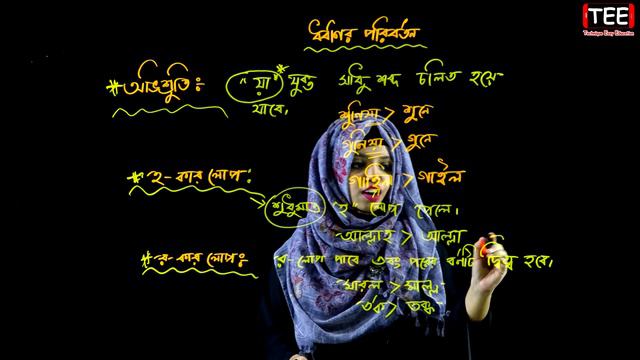 TEE
Technique Easy Education
ধ্বনির পরিবর্তন
* অভিশ্রুতি : "য়া" যুক্ত সাধু শব্দ চলিত হয়ে
যাবে।
শুনিয়া > শুনে
গুনিয়া > গুনে
গাহিল > গাইল
* হ-কার লোপ :
শুধুমাত্র "হ" লোপ পেলে।
আল্লাহ > আল্লা
* র-কার লোপ : র-লোপ পাবে এবং পরের বর্ণটি দ্বিত্ব হবে।
মারল > মাল্ল
তর্ক > তক্ক